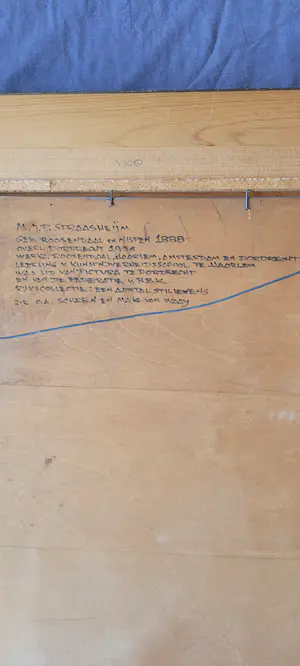 M.J.T. STRAASHEIJM
GEB. ROOSENDAAL EN NISPEN 1888
OVERL. DORDRECHT 1954
WERK. ROOSENDAAL, HAARLEM, AMSTERDAM EN DORDRECHT
LEERLING V. KUNSTNIJVERHEIDSSCHOOL TE HAARLEM
WAS LID VAN PICTURA TE DORDRECHT
EN VAN DE FEDERATIE V. B.B.K.
RIJKSCOLLECTIE: EEN AANTAL STILLEVENS
ZIE O.A. SCHEEN EN MAK VON WAAY